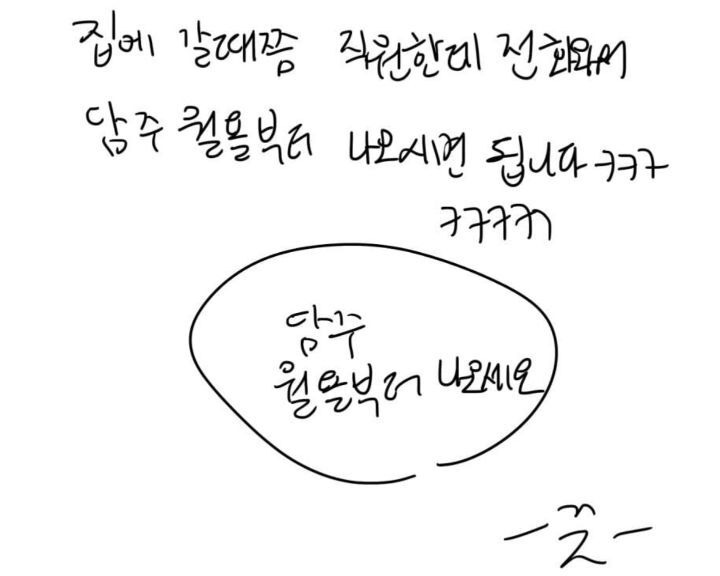 집에 갈때쯤 직원한테 전화와서
담주 월욜부터 나오시면 됩니다 ㅋㅋㅋ
ㅋㅋㅋㅋㅋ
담주
월욜부터 나오세요
-끝-